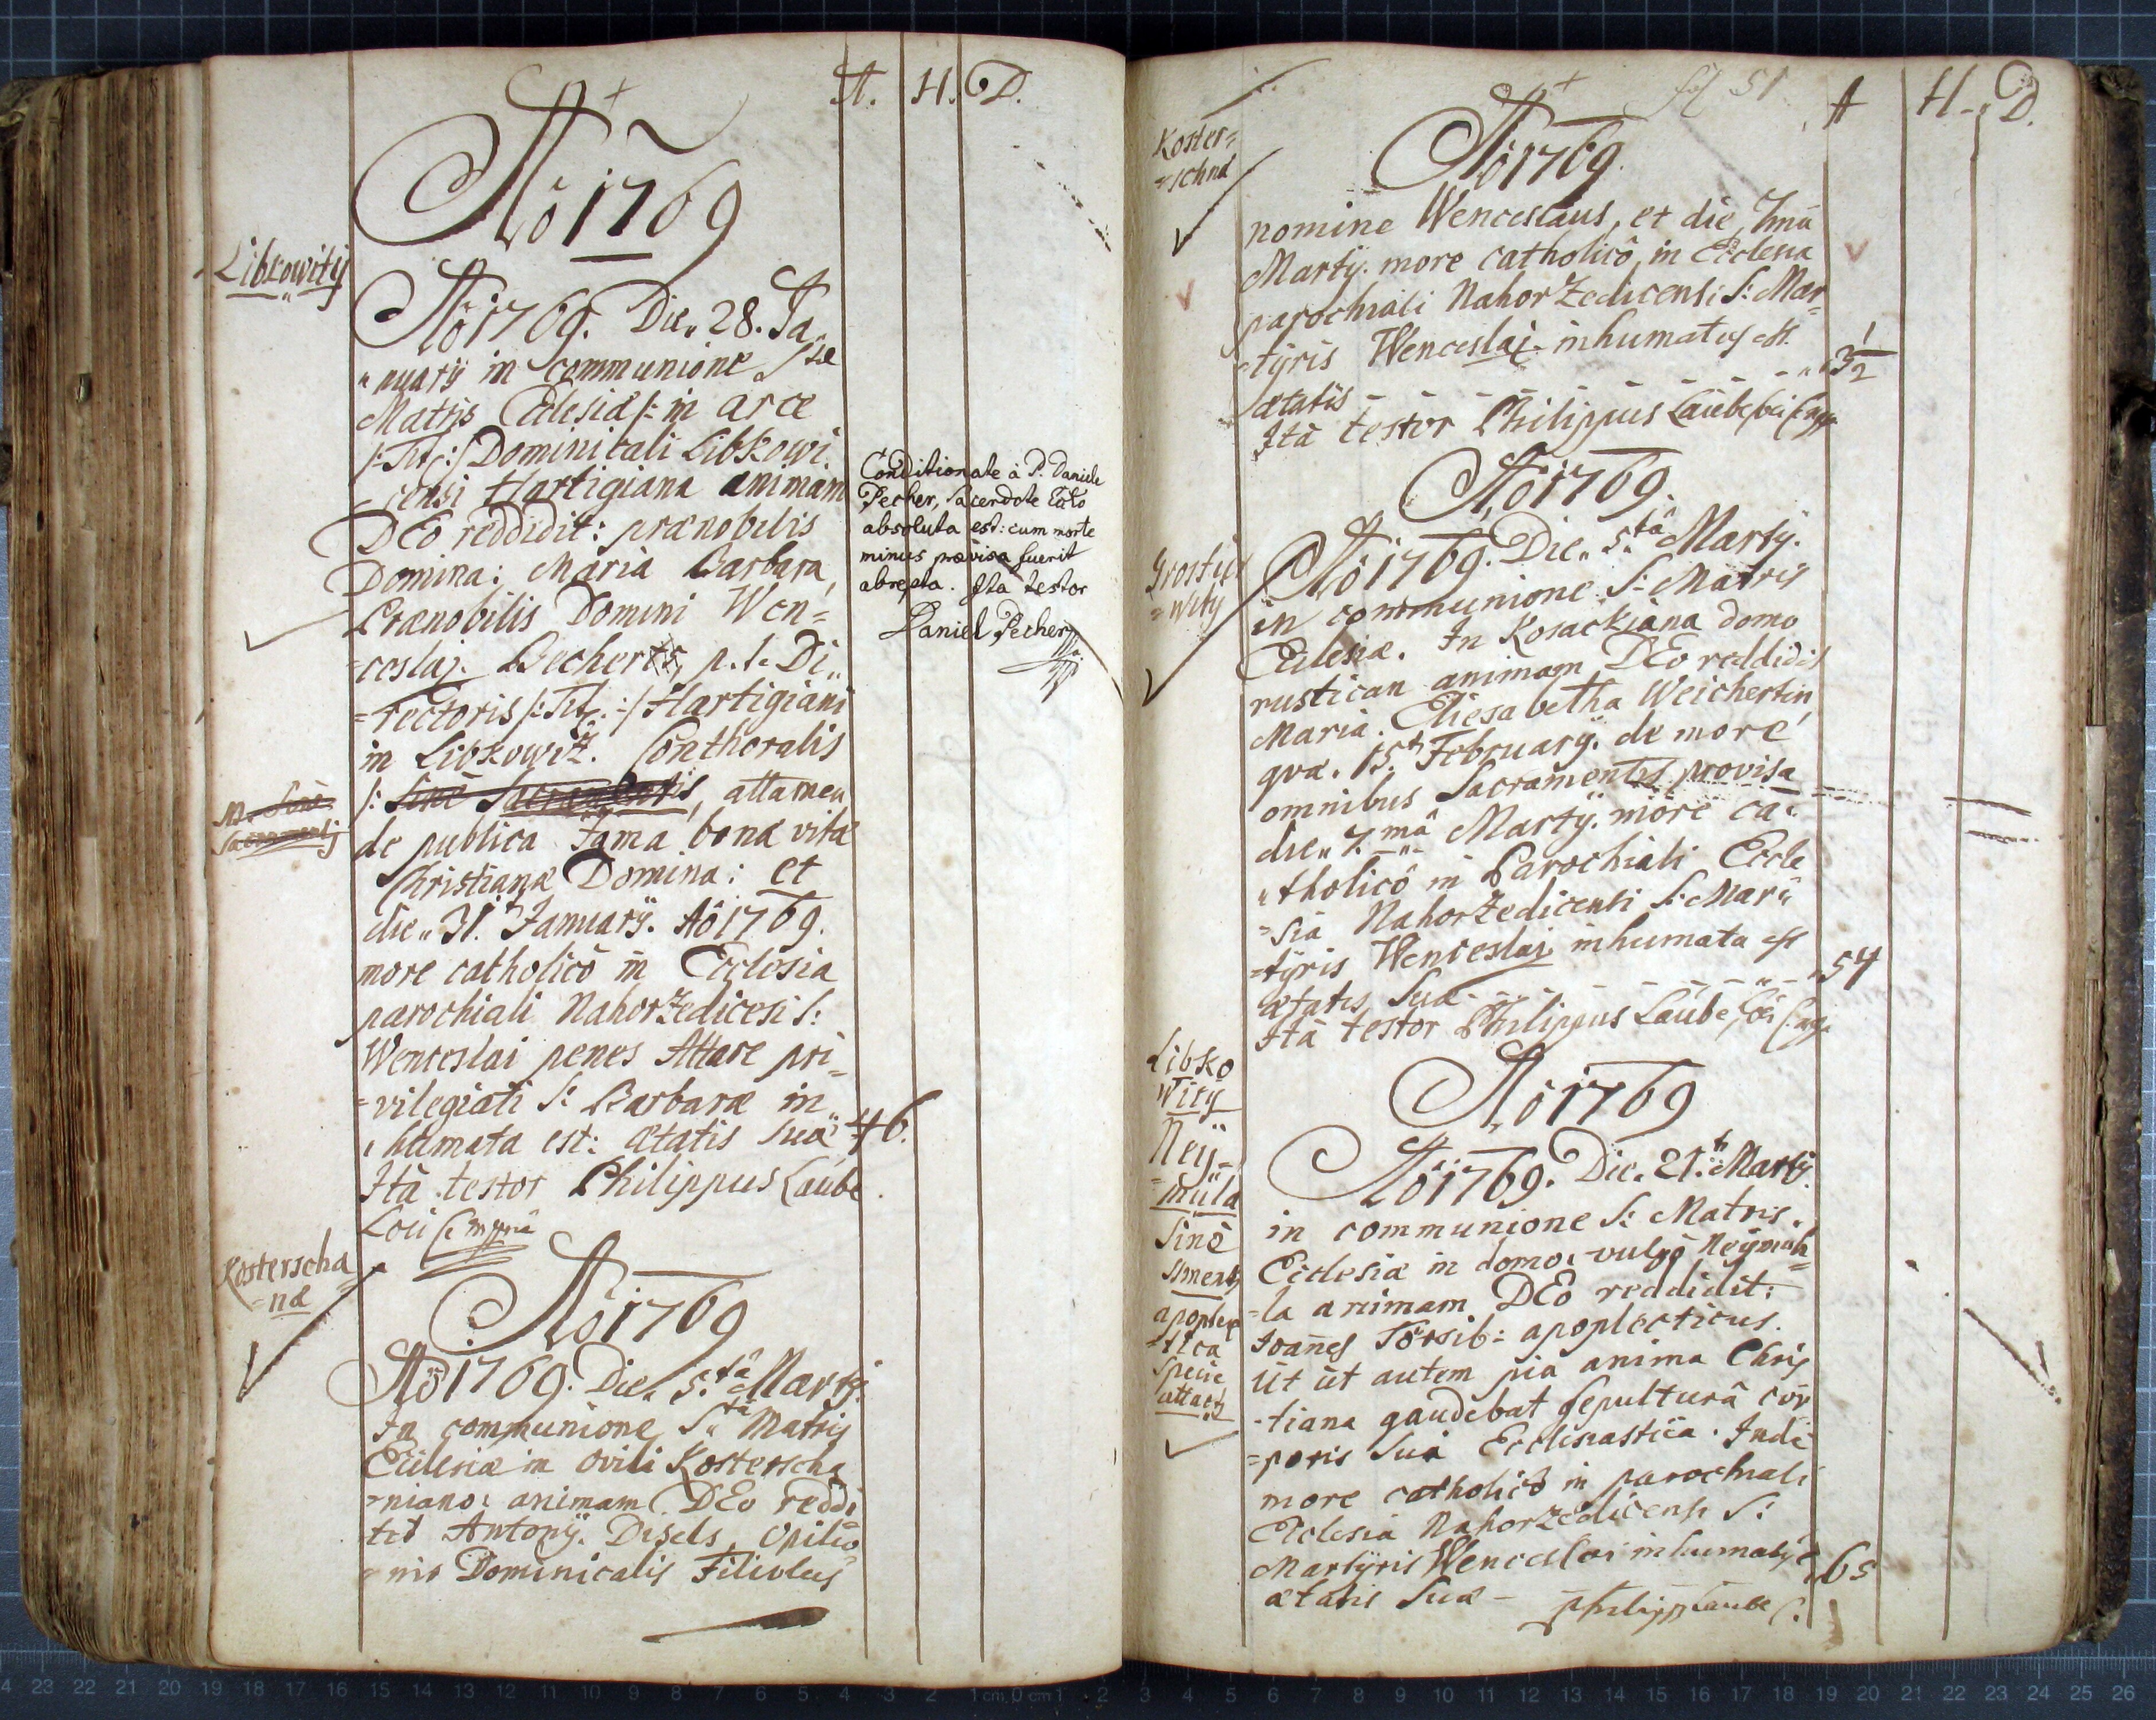 A. H. D.
Aõ 1769
Libkowitz
Aõ 1769. Die„ 28. Ja„
„nuarij in communione Stæ
Matris Eclesiæ /: in arce
/: Tit: :/ Dominicali Libkowi„
censi Hartigiana animam
DEo reddidit: prænobilis
Domina: Maria Barbara,
Prænobilis Domini Wen=
=ceslaj. Becher p. t. Di„
=rectoris /: Tit. :/ Hartigiani
in Libkowitz. Conthoralis
/: Sine Sacramentis, attamen
de publica fama bonæ vitæ
Christianæ Domina: et
die„ 31t Januarÿ. Aõ 1769.
more catholicô in Ecclesia
parochiali Nahorzedicesi S:
Wenceslai penes Altare pri„
=vilegiati S: Barbaræ in„
„humata est: ætatis suæ 46.
Ità testor Philippus Laube
Loci C
M. Sine
Sacramentis
Conditionate à P. Daniele
Pecher, Sacerdote
absoluta est: cum morte
minus prævisa fuerit
abrepta. Ita testor
Daniel Pecher
Kosterscha
=næ
Aõ 1769
Aõ 1769. Die„ 5.tâ Martÿ.
In communione S„tæ Matris
Eclesiæ in ovili Kosterscha
=niano: animam DEo reddi
=tit Antonÿ. Disels, Opilio
=nis Dominicalis Filiolus
fol 51
A H. D.
Koster=
=schna
Aõ 1769.
nomine Wenceslaus, et die 7mâ
Martÿ. more catholicô, in Ecclesia
parochiali Nahorzedicensi S: Mar=
=tÿris Wenceslai inhumatus est.
ætatis - - - - - - 3 1/2
Ità testor Philippus Laube
Aõ 1769.
=witz
Aõ 1769. Die„ 5.tâ Martÿ.
in communione S: Matris
Eclesiæ. In Kosackiana domo
rustican animam DEo reddidit
Maria. Eliesabetha Weichertin,
qvæ. 15t Februarÿ. de more
omnibus Sacramentis provisa
die„ 7.mâ Martÿ. more ca=
„tholicô in Parochiali Eccle
=sia Nahorzedicensi S: Mar„
=tÿris Wenceslai inhumata est
ætatis suæ - - - - - 54
Ità testor Philippus Laube, Loci C
Libko
witz
Neÿ=
=mula
Sine
apoplec
=tica
specie
Aõ 1769
Aõ 1769. Die„ 21.t Martÿ.
in communione S: Matris„
Ecclesiæ in domo: vulgô Neÿmuh=
=la animam DEo reddidit:
Joannes apoplecticus.
ut ut autem pia anima Chris
=tiana gaudebat sepulturâ cor
=poris sui Ecclesiastica. Inde
more catholicô in parochiali
Ecclesia Nahorzedicensi S:
Martÿris Wenceslai inhumatus e
ætatis suæ - 65
Philipp Laube C.